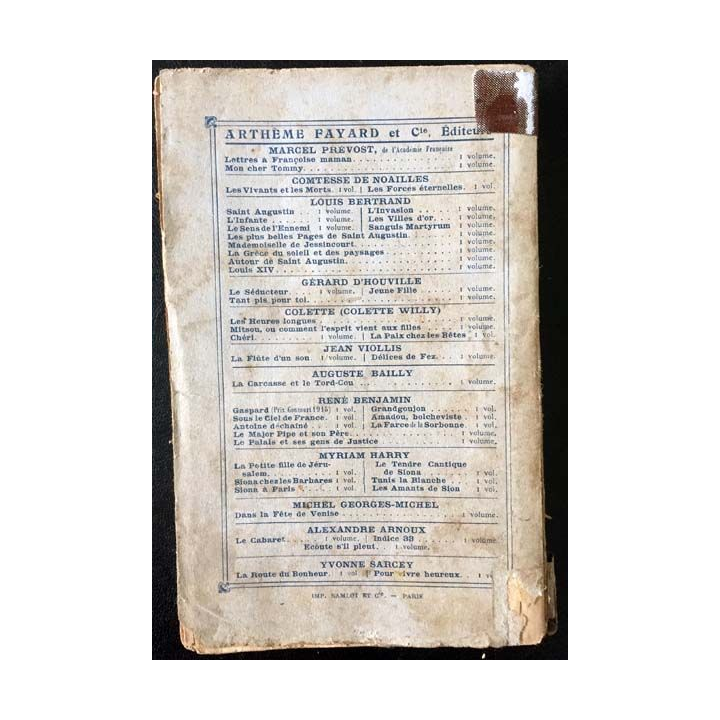 ARTHÈME FAYARD et Cie, Éditeurs
MARCEL PRÉVOST, de l'Académie Française
Lettres à Françoise maman. 1 volume.
Mon cher Tommy. 1 volume.
COMTESSE DE NOAILLES
Les Vivants et les Morts. 1 vol. | Les Forces éternelles. 1 vol.
LOUIS BERTRAND
Saint Augustin . . 1 volume. | L'Invasion . . . . 1 volume.
L'Infante . . . . 1 volume. | Les Villes d'or. . . 1 volume.
Le Sens de l'Ennemi 1 volume. | Sanguis Martyrum 1 volume.
Les plus belles Pages de Saint Augustin. 1 volume.
Mademoiselle de Jessincourt. 1 volume.
La Grèce du soleil et des paysages 1 volume.
Autour de Saint Augustin. 1 volume.
Louis XIV. 1 volume.
GÉRARD D'HOUVILLE
Le Séducteur. . . . 1 volume. | Jeune Fille . . . . 1 volume.
Tant pis pour toi. 1 volume.
COLETTE (COLETTE WILLY)
Les Heures longues. 1 volume.
Mitsou, ou comment l'esprit vient aux filles 1 volume.
Chéri. . . . 1 volume. | La Paix chez les Bêtes 1 vol.
JEAN VIOLLIS
La Flûte d'un sou 1 volume. | Délices de Fez. . . 1 volume.
AUGUSTE BAILLY
La Carcasse et le Tord-Cou 1 volume.
RENÉ BENJAMIN
Gaspard (Prix Goncourt 1915) 1 vol. | Grandgoujon . . . . 1 vol.
Sous le Ciel de France. 1 vol. | Amadou, bolcheviste . 1 vol.
Antoine déchaîné . . 1 vol. | La Farce de la Sorbonne. 1 vol.
Le Major Pipe et son Père. 1 volume.
Le Palais et ses gens de Justice 1 volume.
MYRIAM HARRY
La Petite fille de Jéru- | Le Tendre Cantique
salem. . . . 1 vol. | de Siona . . . . 1 vol.
Siona chez les Barbares 1 vol. | Tunis la Blanche . . 1 vol.
Siona à Paris . . . 1 vol. | Les Amants de Sion 1 vol.
MICHEL GEORGES-MICHEL
Dans la Fête de Venise. 1 volume.
ALEXANDRE ARNOUX
Le Cabaret. . . . 1 volume. | Indice 33 . . . . 1 volume.
Ecoute s'il pleut. . 1 volume.
YVONNE SARCEY
La Route du Bonheur. 1 vol | Pour vivre heureux. . 1 vo
IMP. RAMLOT ET Cie. — PARIS